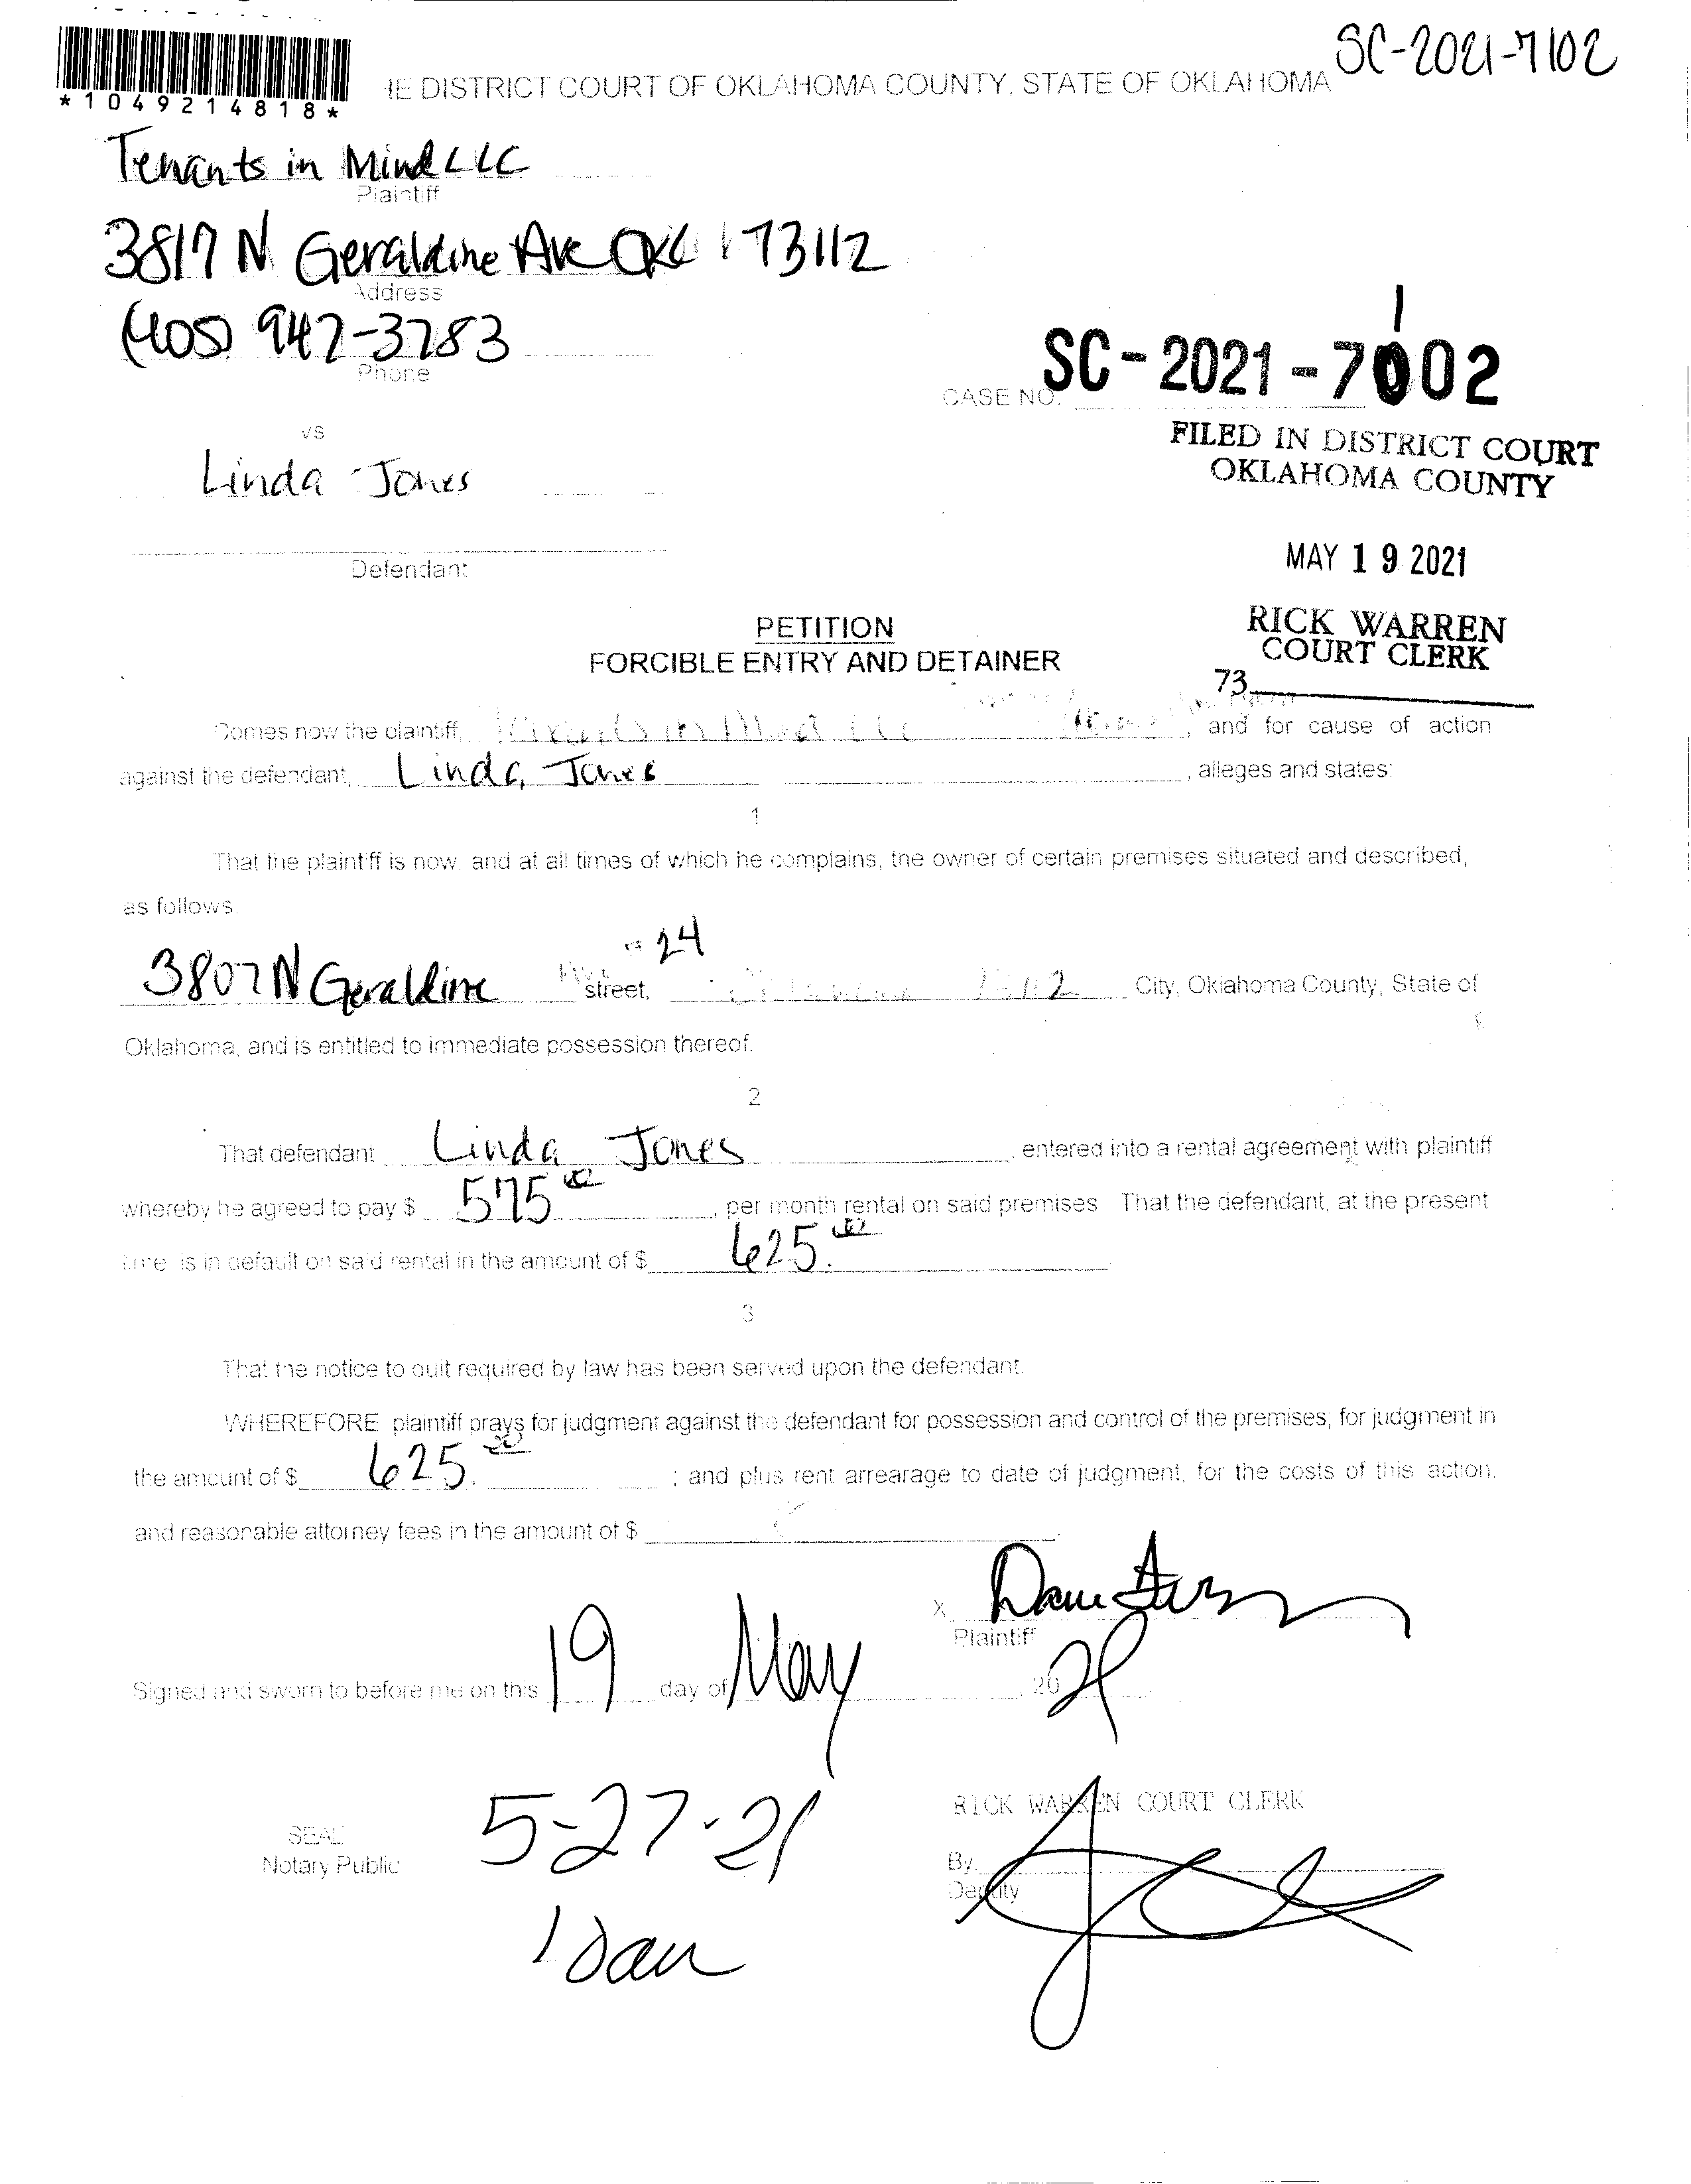 SC-2021-7102
*1049214818*
IE DISTRICT COURT OF OKLAHOMA COUNTY, STATE OF OKLAHOMA
Tenants in Mind LLC
Plaintiff
3817 N Geraldine Ave OKC 73112
Address
(405) 947-3783
Phone
CASE NO. SC-2021-7102
FILED IN DISTRICT COURT
OKLAHOMA COUNTY
vs
Linda Jones
MAY 19 2021
Defendant
PETITION
FORCIBLE ENTRY AND DETAINER
RICK WARREN
COURT CLERK
73
Comes now the plaintiff, Tenants in Mind LLC, and for cause of action
against the defendant, Linda Jones, alleges and states:
1
That the plaintiff is now, and at all times of which he complains, the owner of certain premises situated and described,
as follows.
3807 N Geraldine Ave #24 street, City, Oklahoma County, State of
Oklahoma, and is entitled to immediate possession thereof.
2
That defendant Linda Jones entered into a rental agreement with plaintiff
whereby he agreed to pay $ 575.00, per month rental on said premises That the defendant, at the present
time is in default on said rental in the amount of $ 625.00
3
That the notice to quit required by law has been served upon the defendant.
WHEREFORE plaintiff prays for judgment against the defendant for possession and control of the premises; for judgment in
the amount of $ 625.00; and plus rent arrearage to date of judgment, for the costs of this action,
and reasonable attorney fees in the amount of $
X
Plaintiff
Signed and sworn to before me on this 19 day of May, 20 21
RICK WARREN COURT CLERK
5-27-21
SEAL
Notary Public
By
Deputy